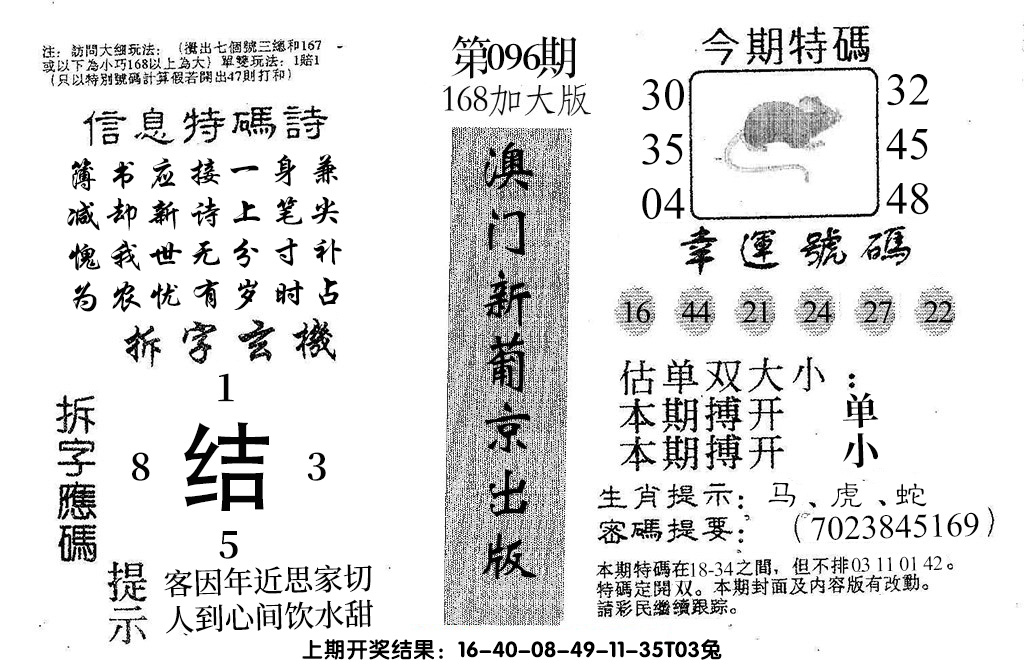 注：訪問大细玩法：（攪出七個號三總和167
或以下為小巧168以上為大）單雙玩法：1賠1
（只以特別號碼計算假若開出47則打和）
信息特碼詩
簿书应接一身兼
减却新诗上笔尖
愧我世无分寸补
为农忧有岁时占
拆字玄機
拆字應碼
1
8 结 3
5
提示
客因年近思家切
人到心间饮水甜
第096期
168加大版
澳门新葡京出版
今期特碼
30 32
35 45
04 48
幸運號碼
16 44 21 24 27 22
估单双大小：
本期搏开 单
本期搏开 小
生肖提示：马、虎、蛇
密碼提要：（7023845169）
本期特碼在18-34之間，但不排03 11 01 42。
特碼定開双。本期封面及内容版有改動。
請彩民繼續跟踪。
上期开奖结果：16-40-08-49-11-35T03兔